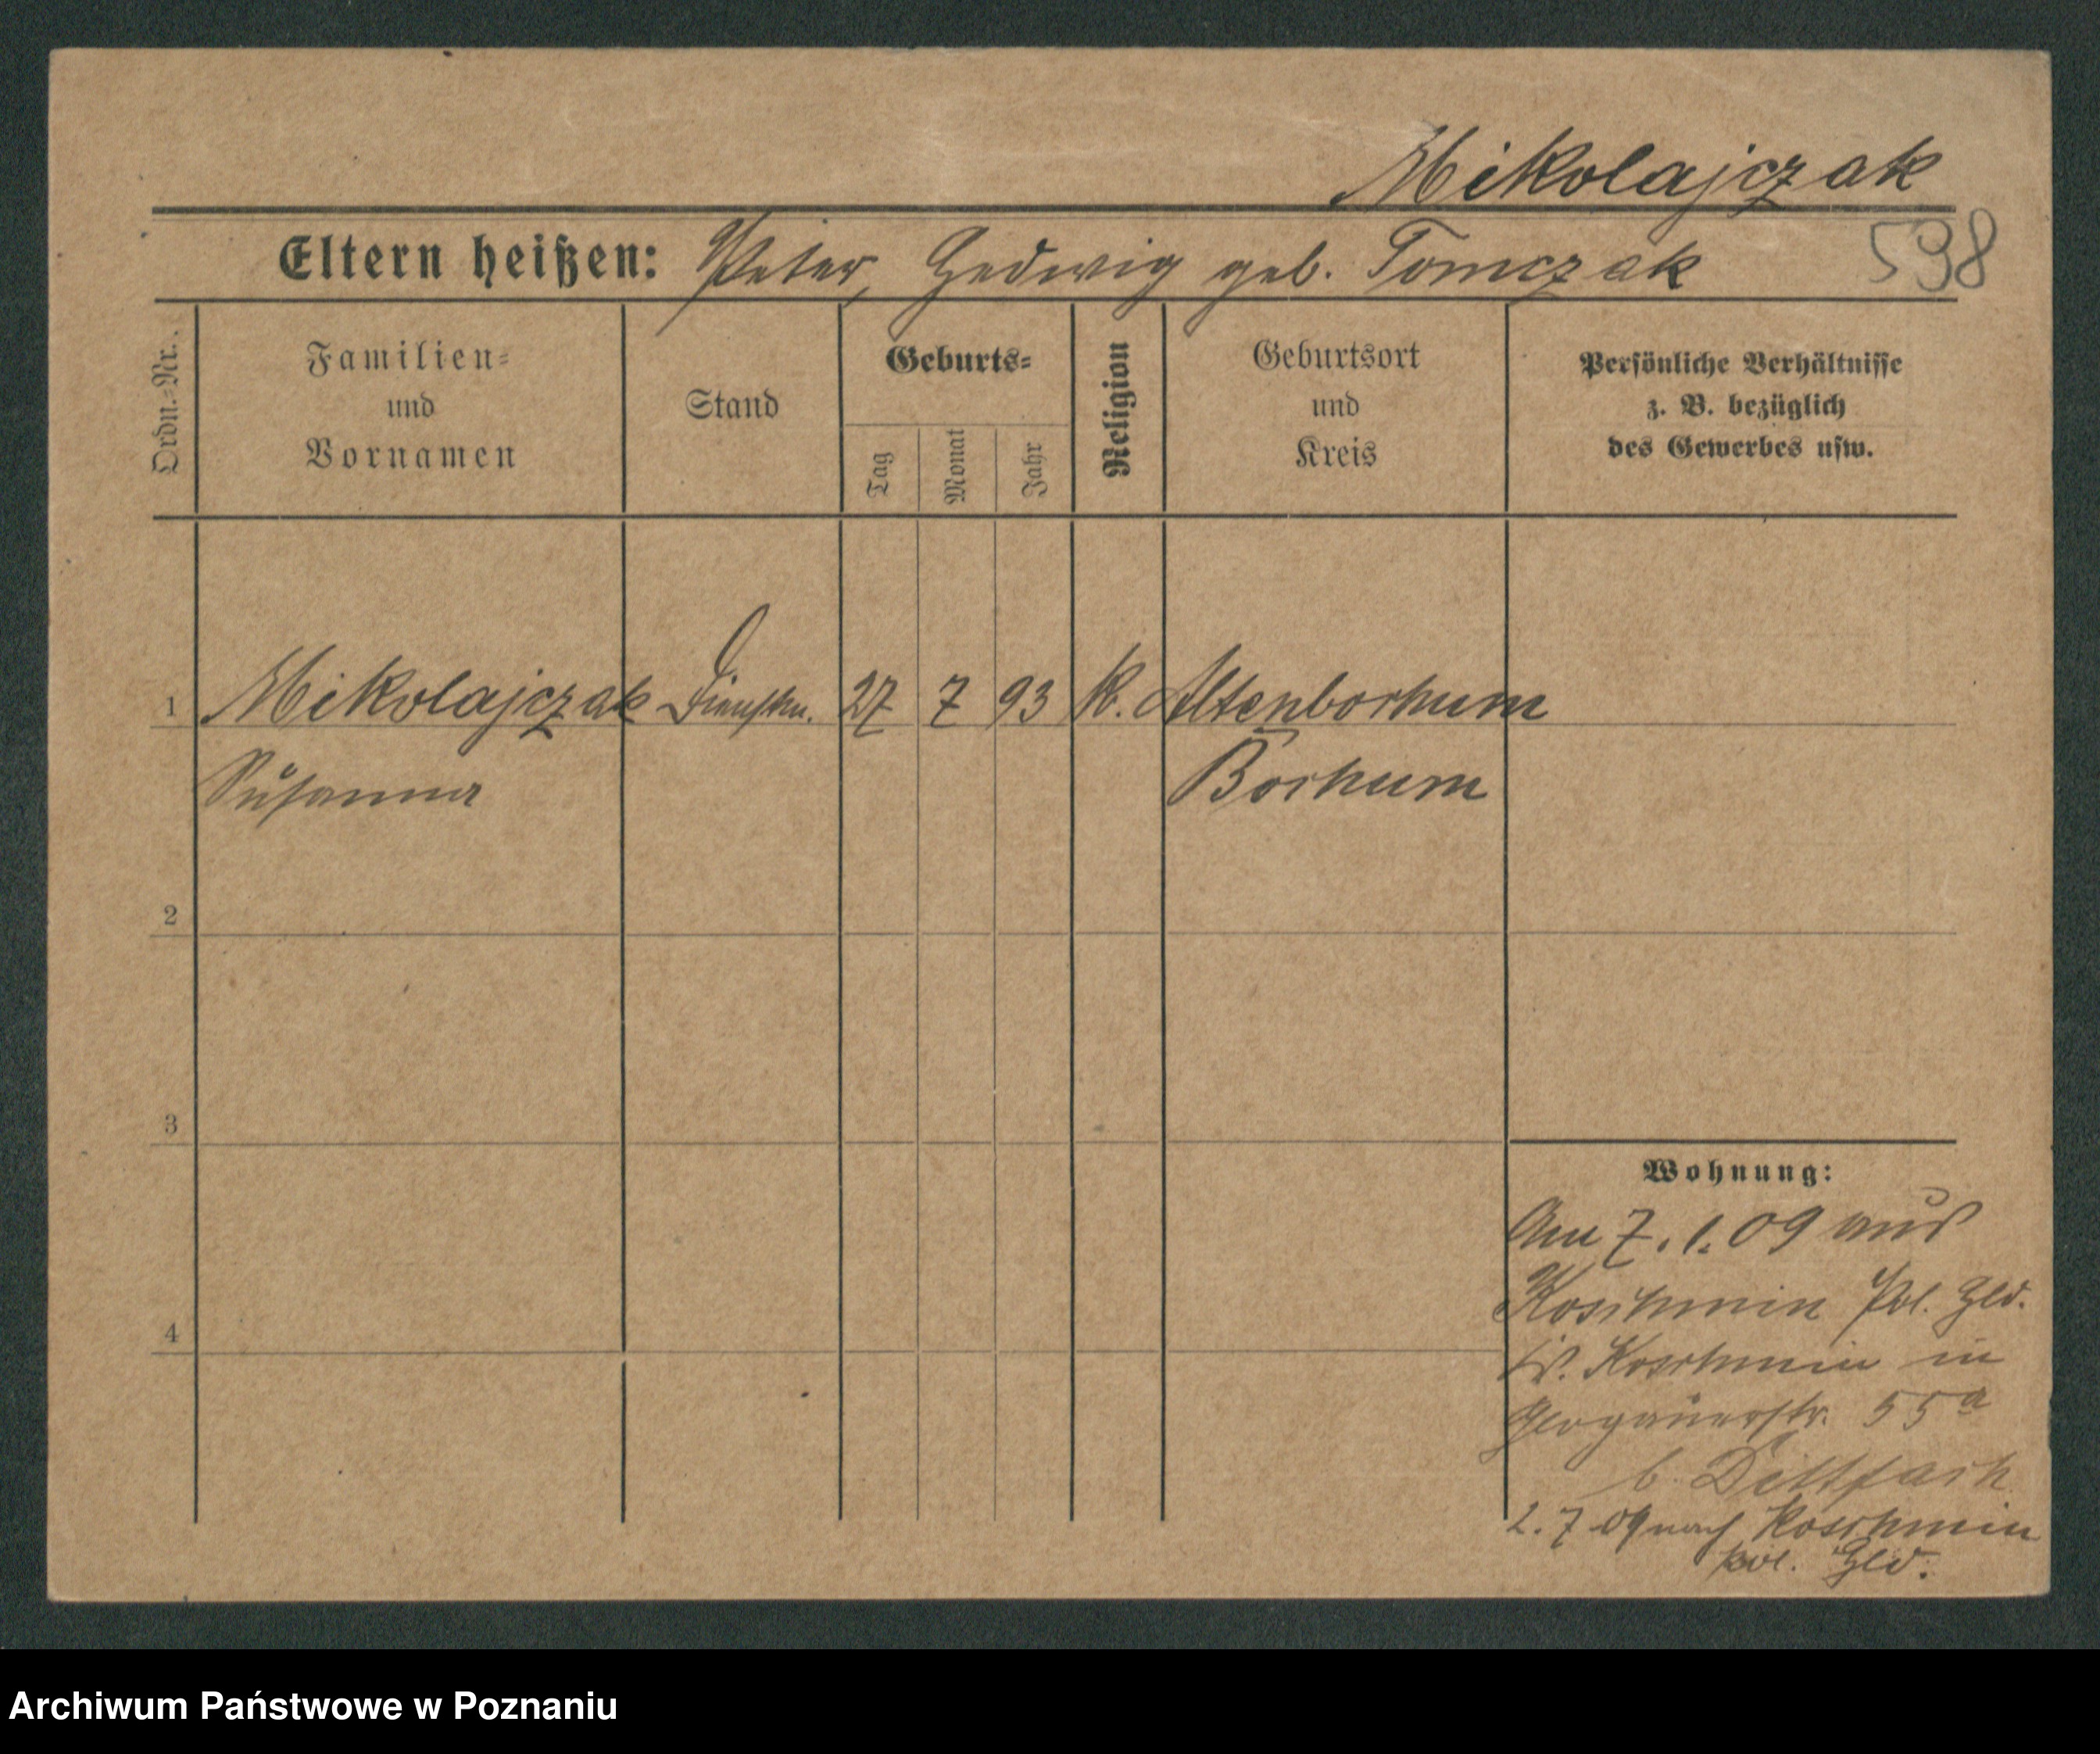 Mikolajczak
Eltern heißen: Peter, Hedwig geb. Tomczak 598
Ordn.-Nr.
Familien-
und
Vornamen
Stand
Geburts-
Tag
Monat
Jahr
Religion
Geburtsort
und
Kreis
Persönliche Verhältnisse
z. B. bezüglich
des Gewerbes usw.
1 Mikolajczak Dienstm. 27 7 93 K. Altenborkum
Susanna Borkum
2
3
4
Wohnung:
Am 7. 1. 09 aus
Koschmin Pol. Gld.
Koschmin in
Glogauerstr. 55a
b. Dittfach
2. 7 09 nach Koschmin
pol. Gld.
Archiwum Państwowe w Poznaniu